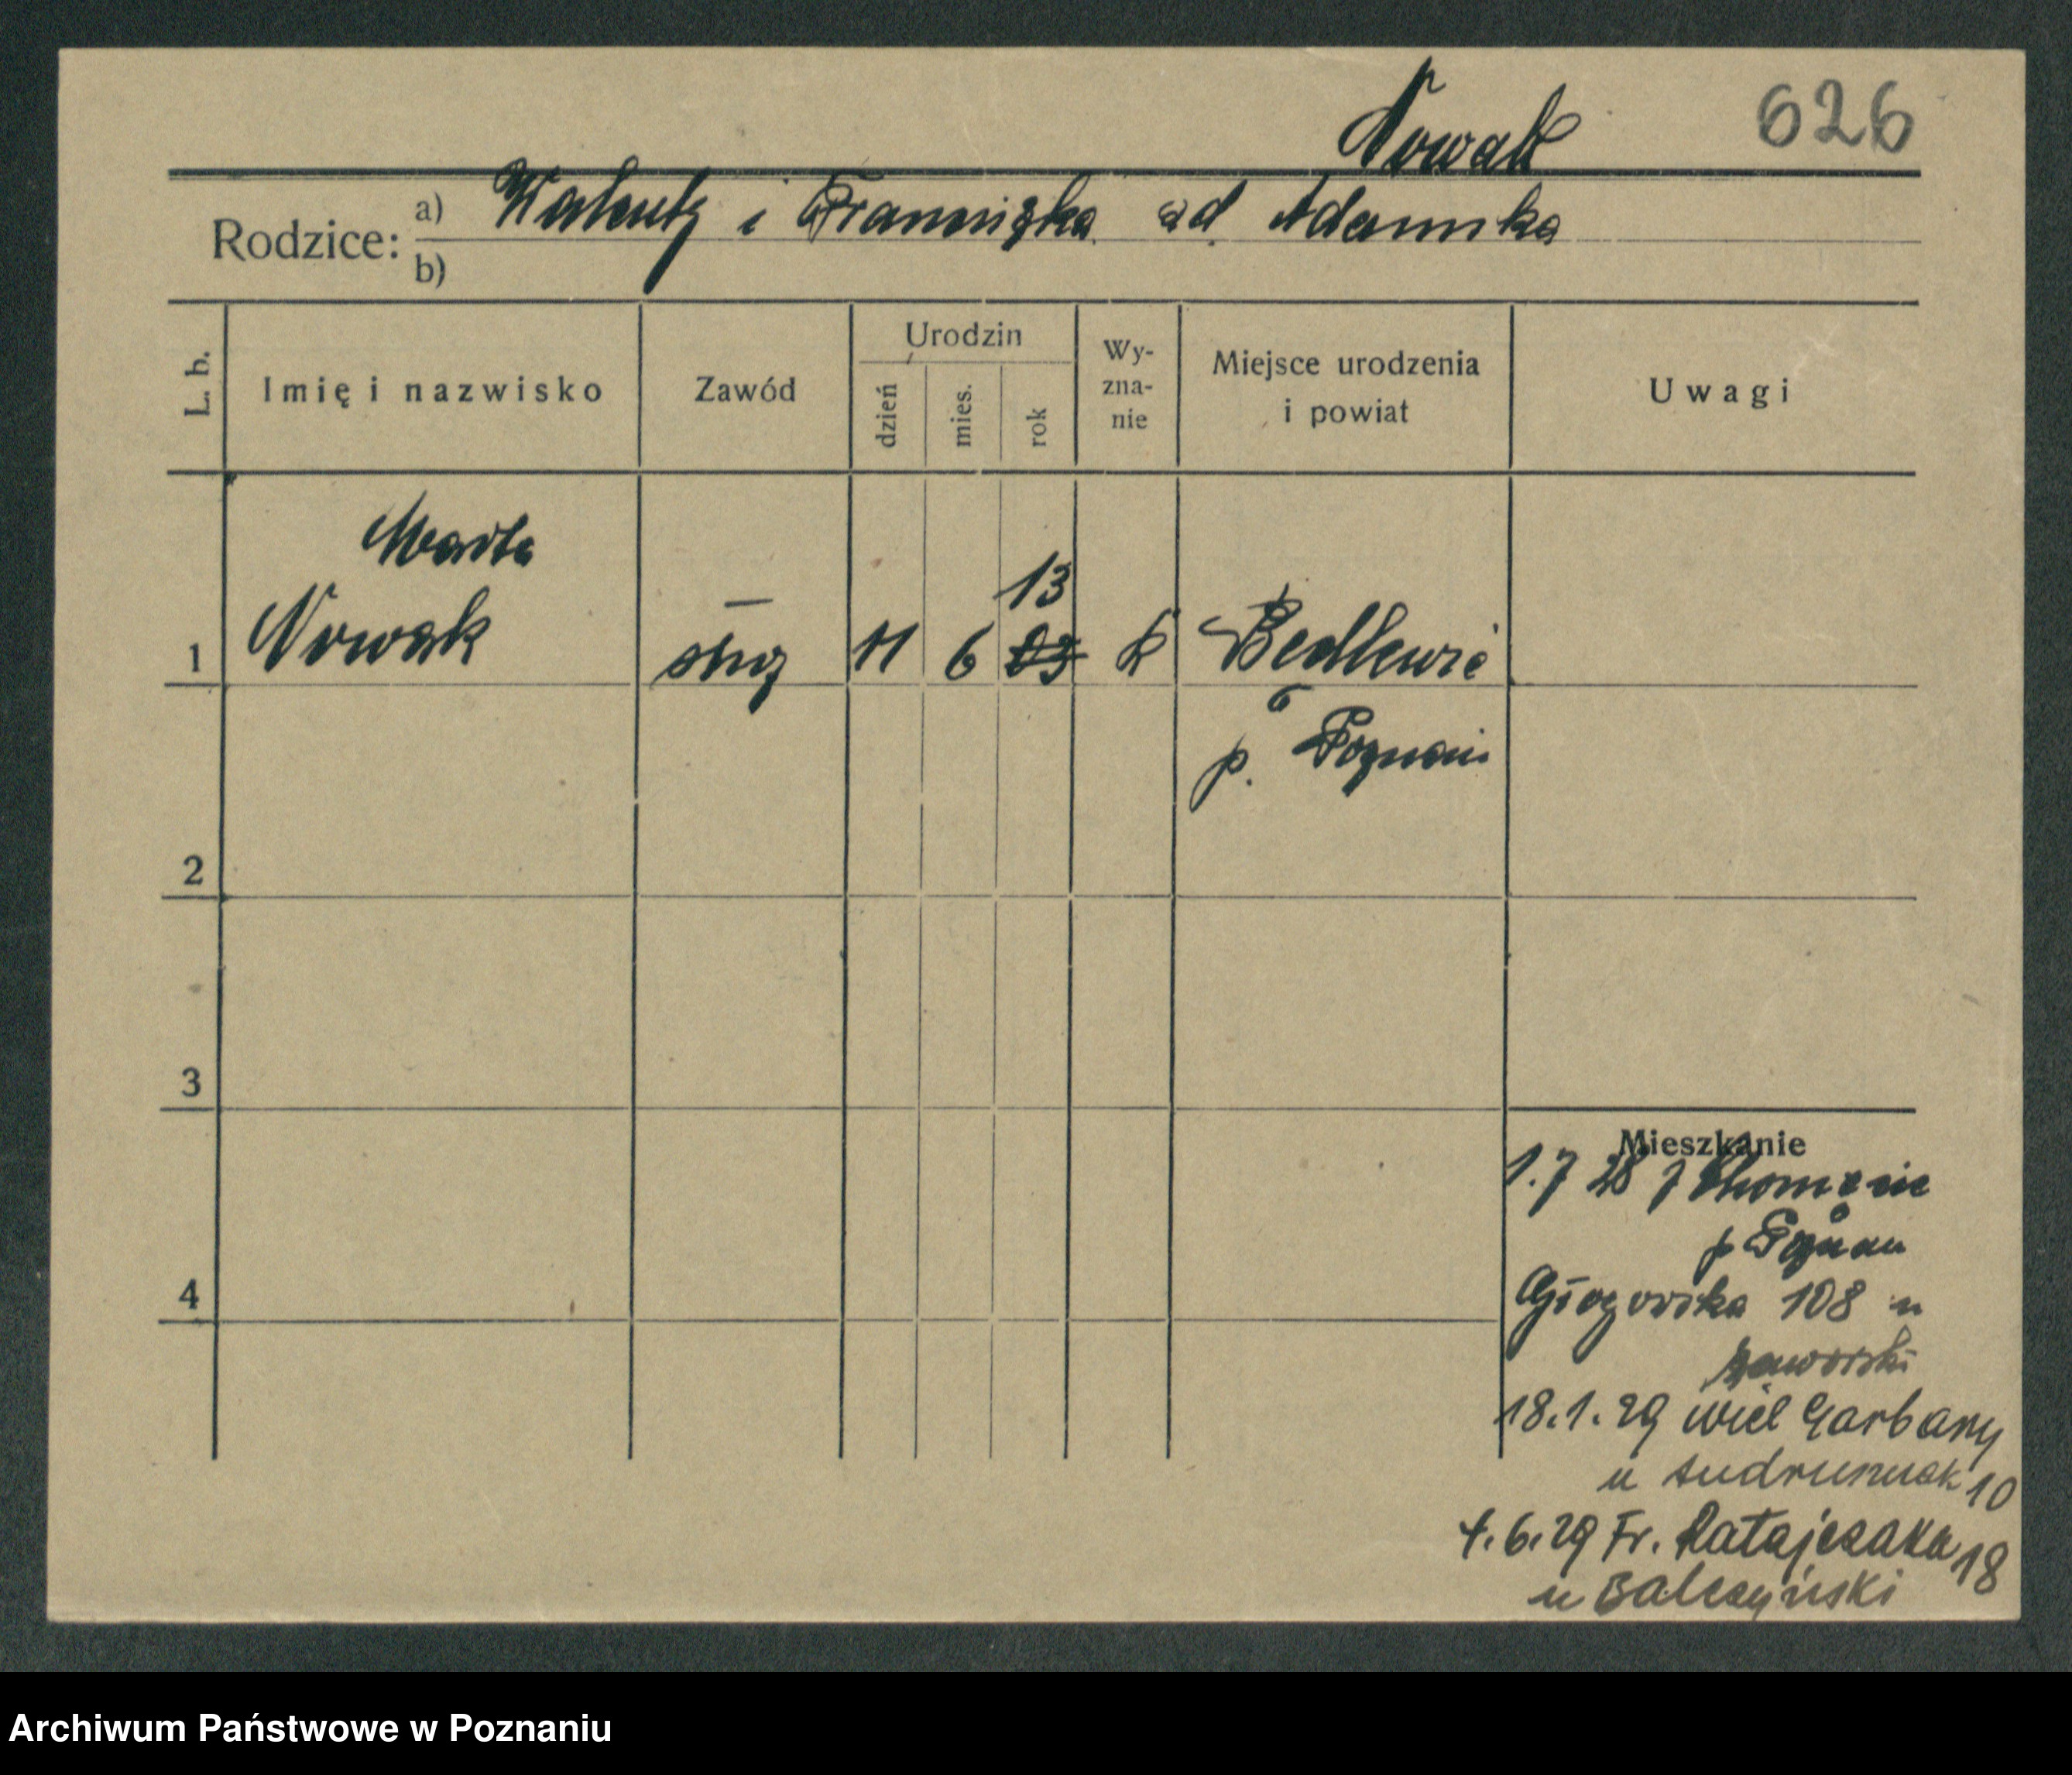 Nowak 626
Rodzice: a) Walenty i Franciszka od Adamska
b)
L. b. Imię i nazwisko Zawód Urodzin dzień mies. rok Wy-zna-nie Miejsce urodzenia i powiat Uwagi
Marta
13
1 Nowak służ 11 6 03 k Bedlewie
p. Poznań
2
3
Mieszkanie
1.7 28 z Chomęcic
p Poznań
4 Głogowska 108 u
Jaworski
18.1.29 Wiel Garbary
u 10
4.6.29 Fr. Ratajczaka 18
u Balczyński
Archiwum Państwowe w Poznaniu